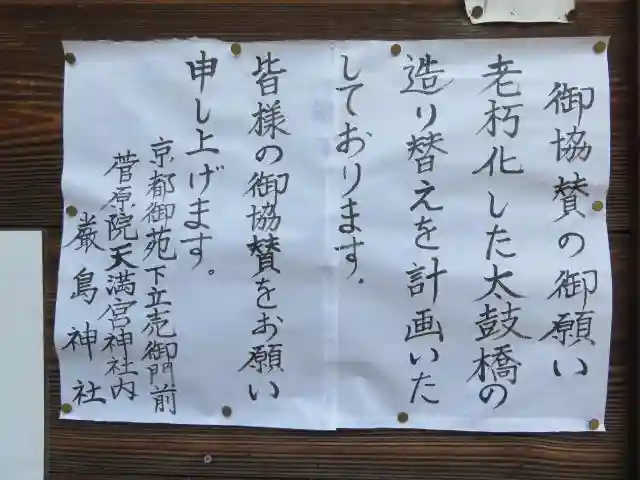 御協賛の御願い
老朽化した太鼓橋の
造り替えを計画いた
しております.
皆様の御協賛をお願い
申し上げます。
京都御苑下立売御門前
菅原院天満宮神社内
厳島神社